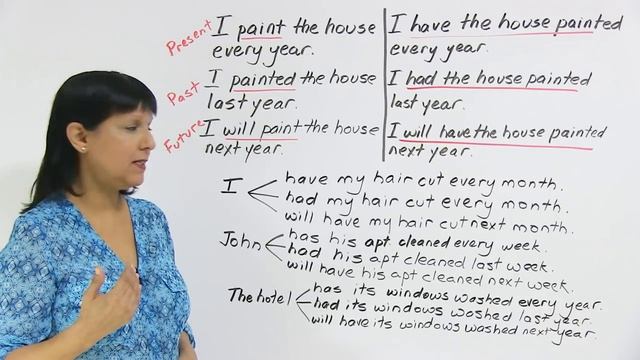 Present
I paint the house
every year.
Past
I painted the house
last year.
Future
I will paint the house
next year.
I have the house painted
every year.
I had the house painted
last year.
I will have the house painted
next year.
I
have my hair cut every month.
had my hair cut every month.
will have my hair cut next month.
John
has his apt cleaned every week.
had his apt cleaned last week.
will have his apt cleaned next week.
The hotel
has its windows washed every year.
had its windows washed last year.
will have its windows washed next year.